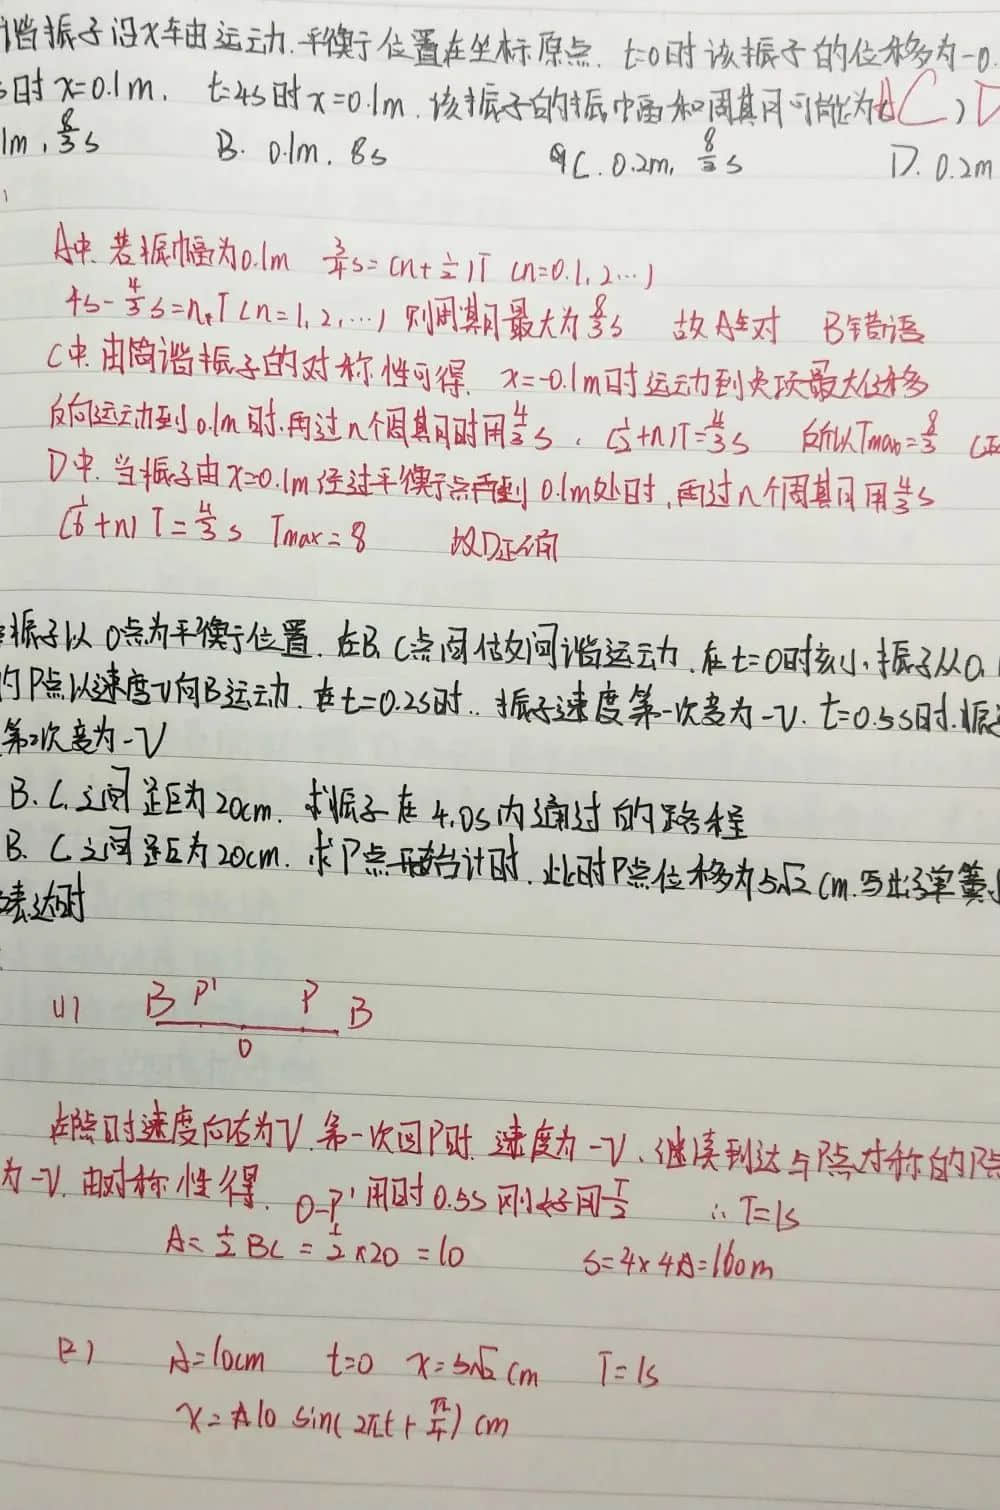 谐振子沿x轴运动.平衡位置在坐标原点. t=0时该振子的位移为-0.
s时x=0.1m. t=4s时x=0.1m.该振子的振幅和周期可能为 AC)D
1m, 8/3 s B. 0.1m, 8s C. 0.2m, 8/3 s D. 0.2m
A中.若振幅为0.1m 3/4 s=(n+1/2)T (n=0.1,2...)
4s-4/3 s=nT (n=1,2,...) 则周期最大为8/3 s 故A对 B错误
C中.由简谐振子的对称性可得. x=-0.1m时运动到负项最大位移
反向运动到0.1m时.再过n个周期时用4/3 s. (1/2+n)T=4/3 s 所以Tmax=8/3 C正
D中.当振子由x=0.1m经过平衡点再到0.1m处时,再过n个周期用4/3 s
(1/6+n)T=4/3 s Tmax=8 故D正确
振子以O点为平衡位置.在B.C点间做简谐运动.在t=0时刻,振子从O.
的P点以速度v向B运动.在t=0.2s时..振子速度第一次变为-v. t=0.5s时.振子
第2次变为-v
B.C.之间距为20cm.求振子在4.0s内通过的路程
B. C之间距为20cm.求P点开始计时.此时P点位移为5√2 cm.写出弹簧
表达时
(1) B P' P B
O
在P点时速度向右为V.第一次回P时.速度为-V.继续到达与P点对称的P点
为-V.由对称性得. O-P'用时0.5s刚好间T/2 ∴T=1s
A=1/2 BC=1/2×20=10 S=4×4A=160m
(2) A=10cm t=0 x=5√2 cm T=1s
x=A10 sin(2πt+π/4) cm